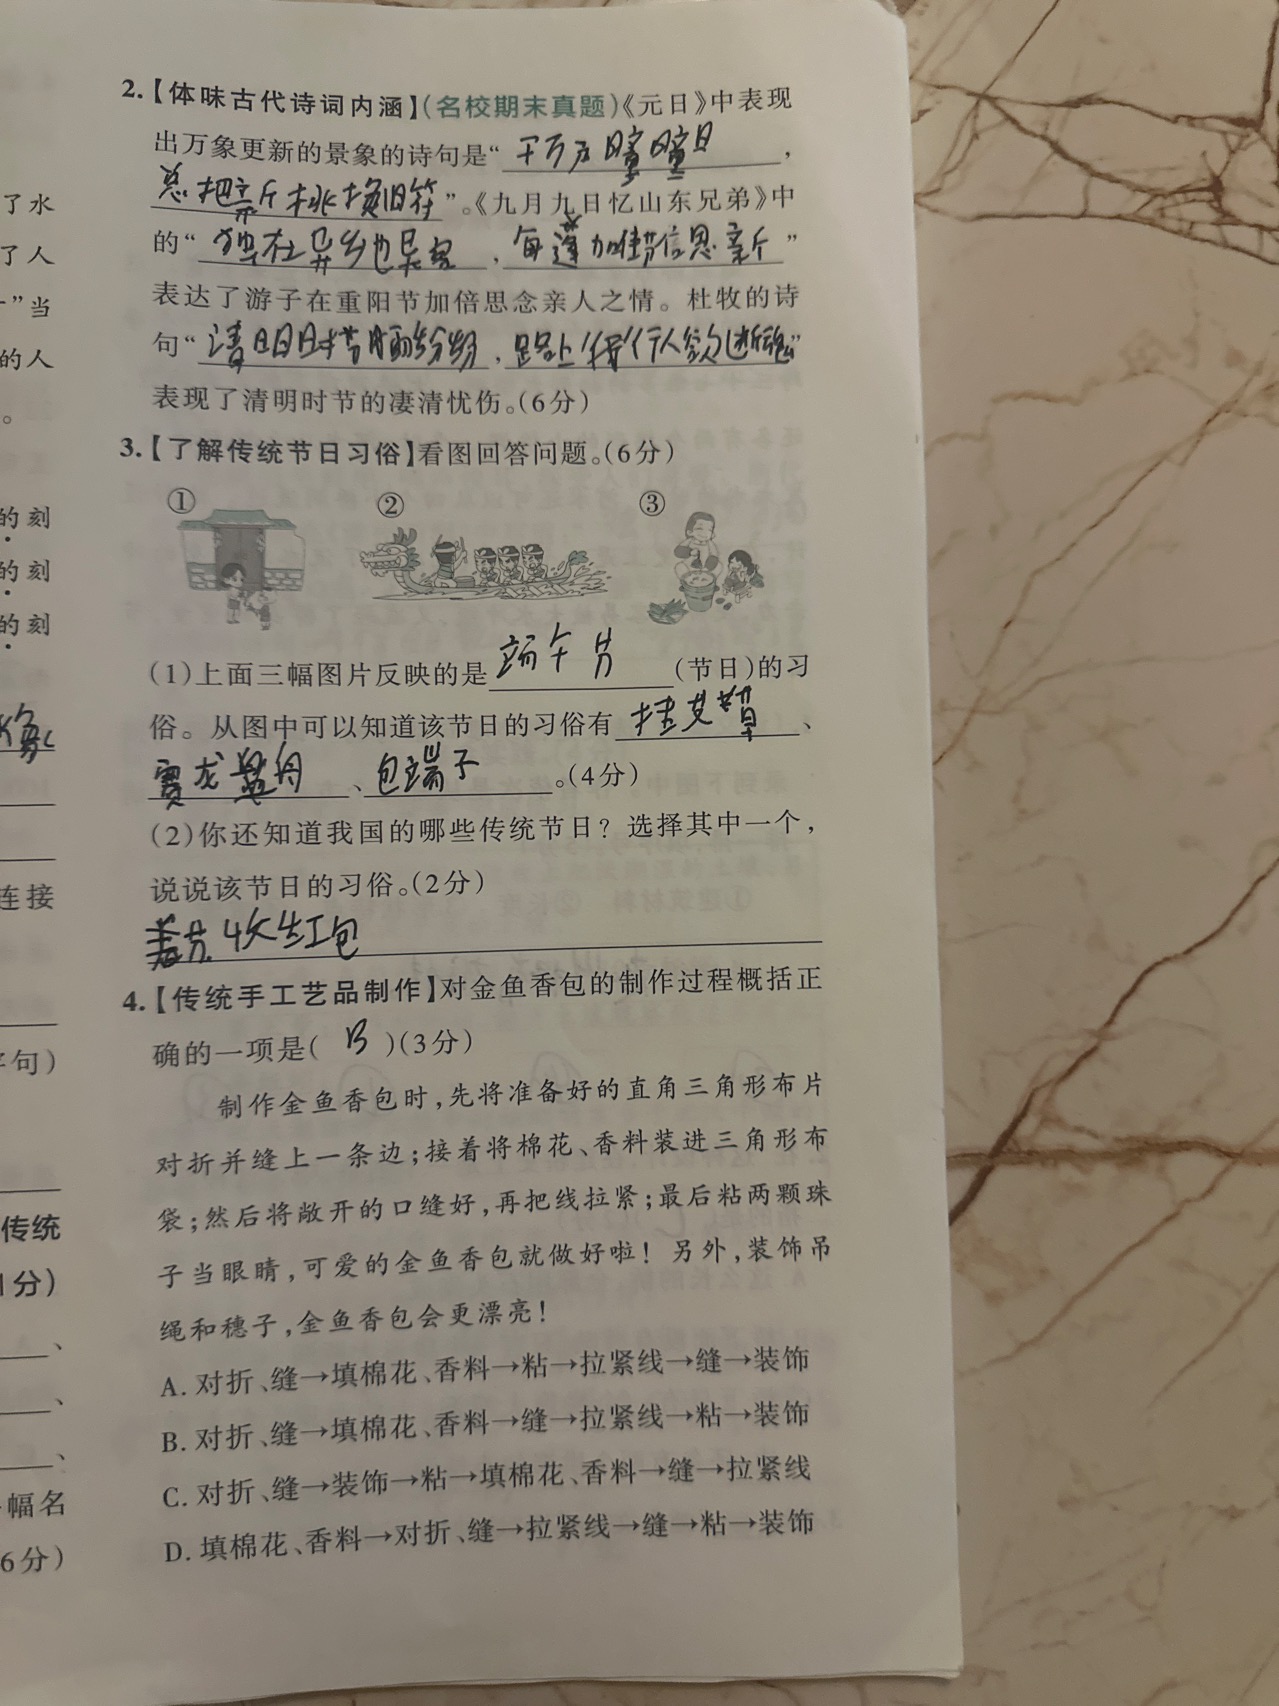 2.【体味古代诗词内涵】(名校期末真题)《元日》中表现
出万象更新的景象的诗句是“千万户曈曈日,
总把新桃换旧符”。《九月九日忆山东兄弟》中
的“独在异乡为异客,每逢佳节倍思亲”
表达了游子在重阳节加倍思念亲人之情。杜牧的诗
句“清明时节雨纷纷,路上行人欲断魂”
表现了清明时节的凄清忧伤。(6分)
3.【了解传统节日习俗】看图回答问题。(6分)
① ② ③
(1)上面三幅图片反映的是端午节(节日)的习
俗。从图中可以知道该节日的习俗有挂艾草、
赛龙舟、包粽子。(4分)
(2)你还知道我国的哪些传统节日?选择其中一个,
说说该节日的习俗。(2分)
春节.收红包
4.【传统手工艺品制作】对金鱼香包的制作过程概括正
确的一项是( B )(3分)
制作金鱼香包时,先将准备好的直角三角形布片
对折并缝上一条边;接着将棉花、香料装进三角形布
袋;然后将敞开的口缝好,再把线拉紧;最后粘两颗珠
子当眼睛,可爱的金鱼香包就做好啦!另外,装饰吊
绳和穗子,金鱼香包会更漂亮!
A. 对折、缝→填棉花、香料→粘→拉紧线→缝→装饰
B. 对折、缝→填棉花、香料→缝→拉紧线→粘→装饰
C. 对折、缝→装饰→粘→填棉花、香料→缝→拉紧线
D. 填棉花、香料→对折、缝→拉紧线→缝→粘→装饰
了水
了人
”当
的人
。
的刻
的刻
的刻
连接
字句)
传统
1分)
、
、
、
幅名
6分)